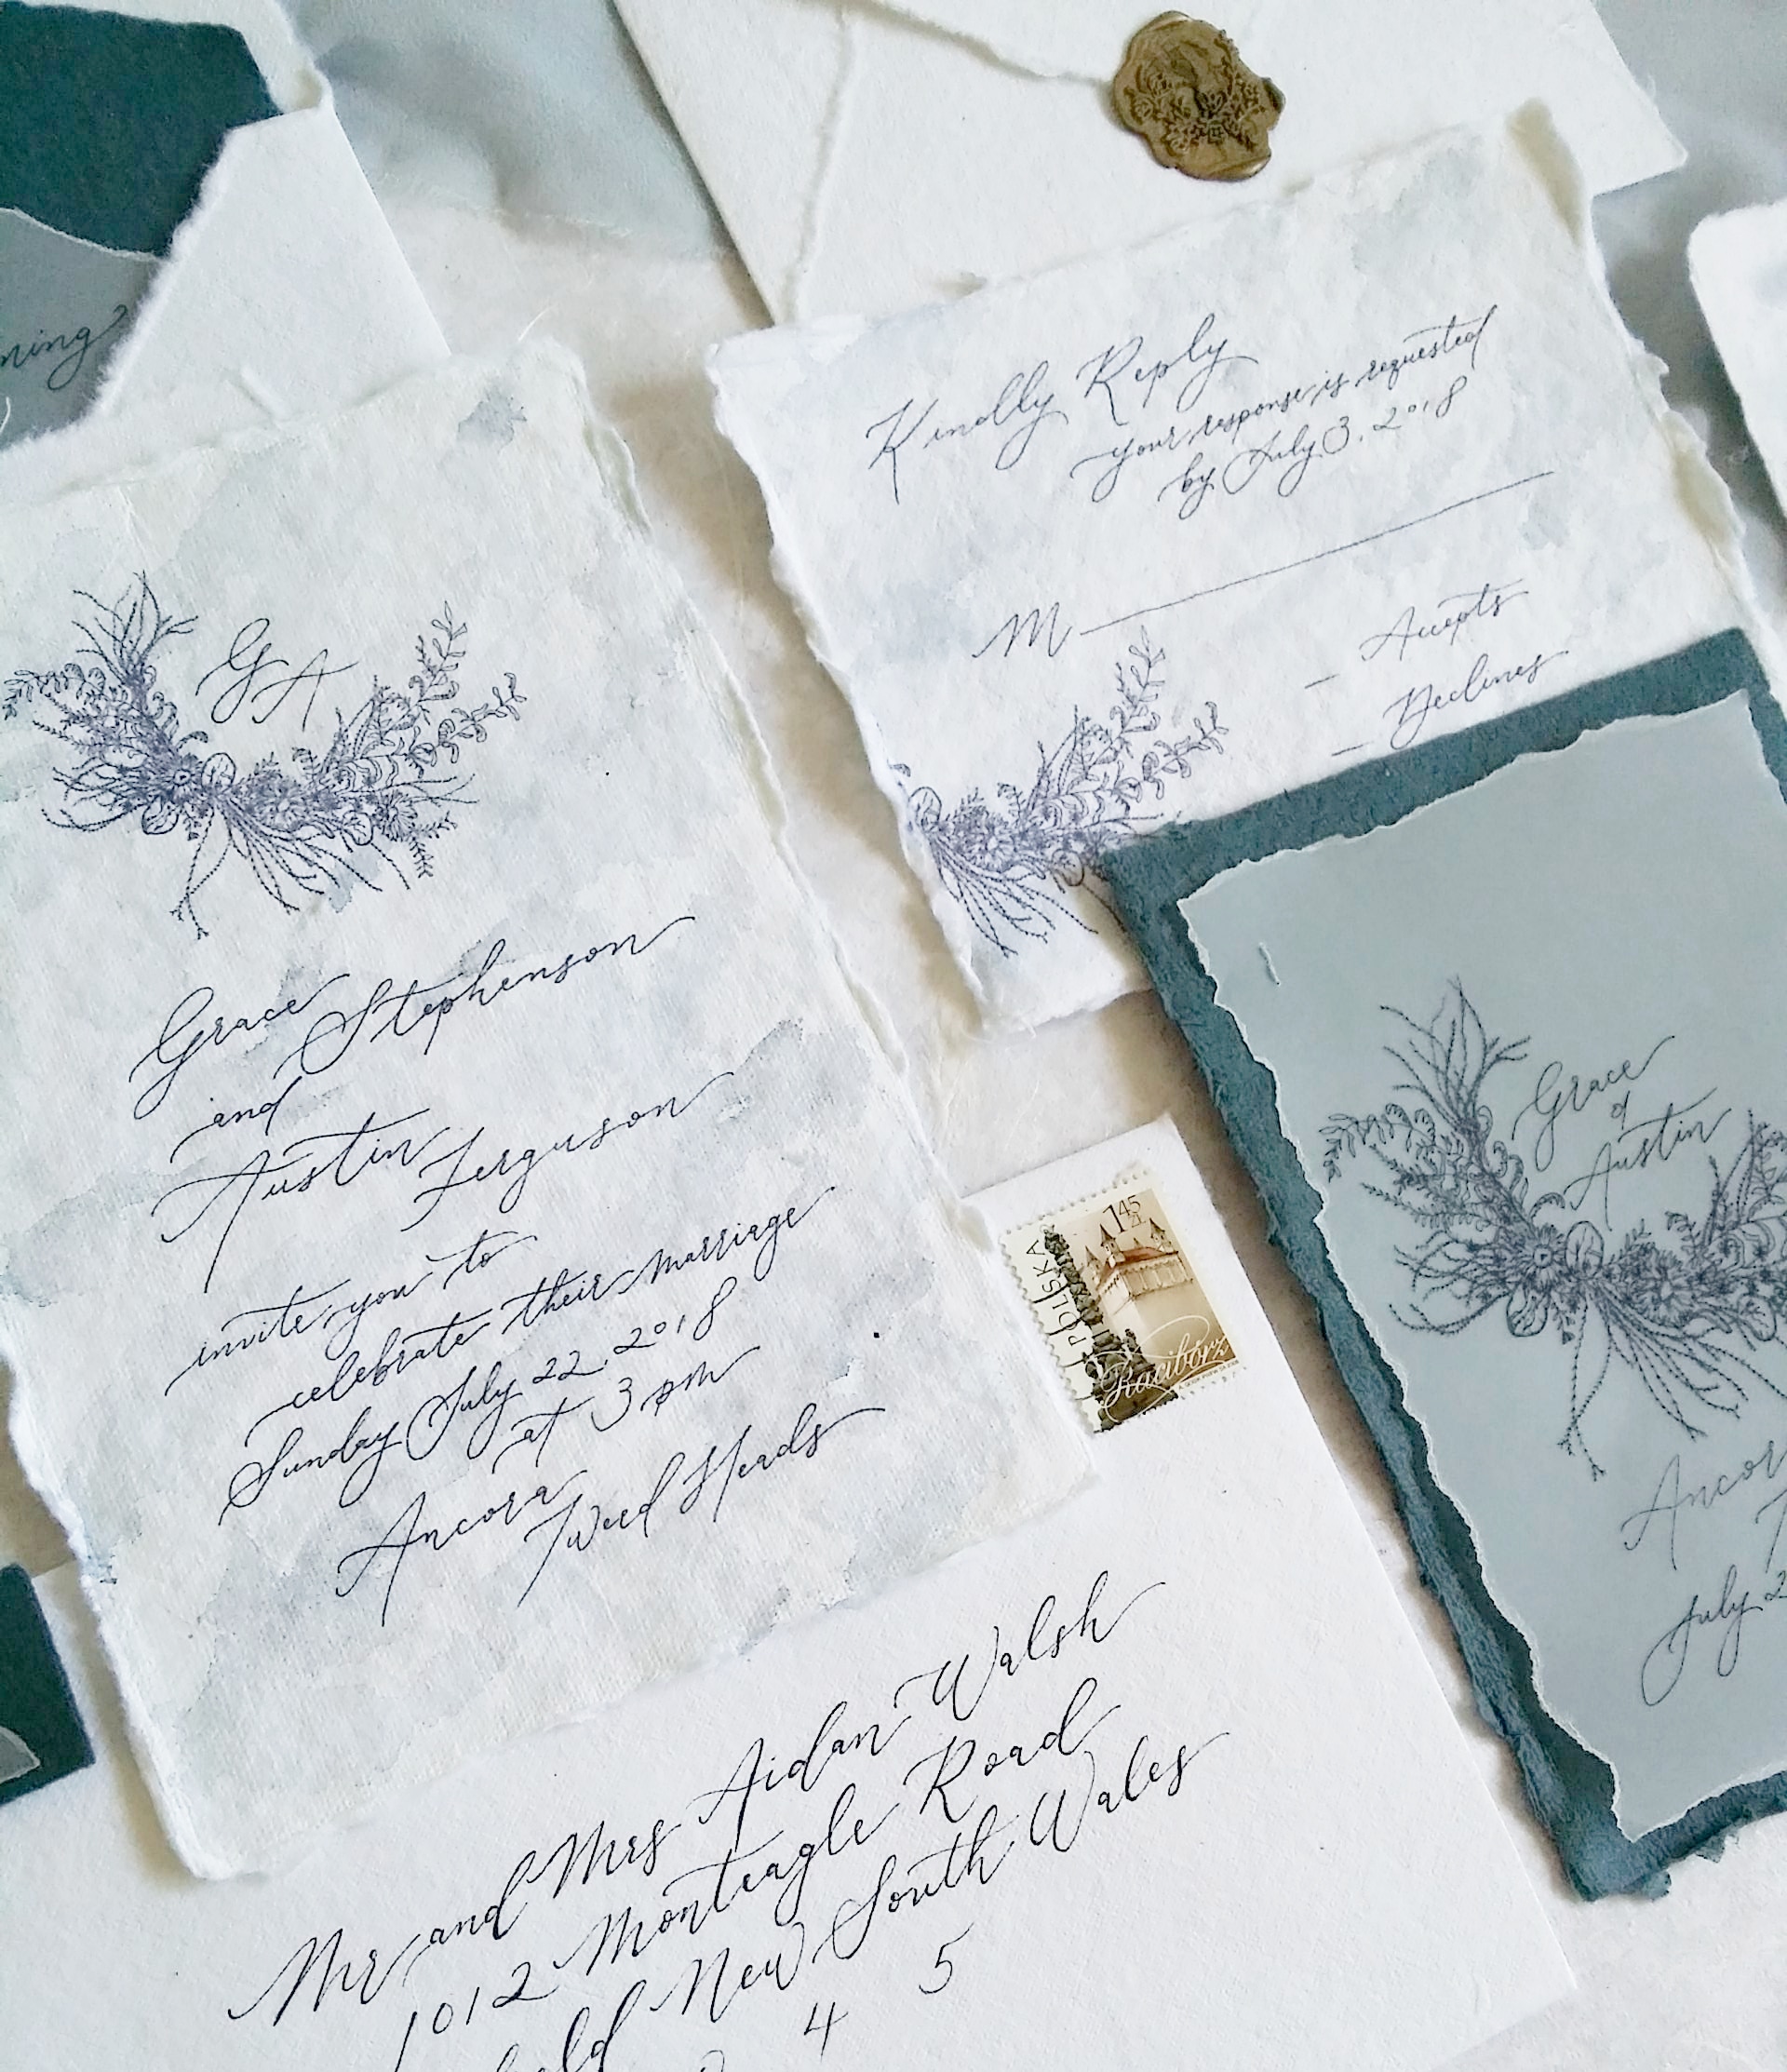 ning
G A
Grace Stephenson
and
Austin Ferguson
invite you to
celebrate their marriage
Sunday July 22, 2018
at 3 pm
Ancora
Tweed Heads
Kindly Reply
your response is requested
by July 3, 2018
M
Accepts
Declines
1 45
ZŁ
POLSKA
Racibórz
Grace
&
Austin
Ancor
T
July 2
Mr and Mrs Aidan Walsh
1012 Monteagle Road
New South Wales
4 5